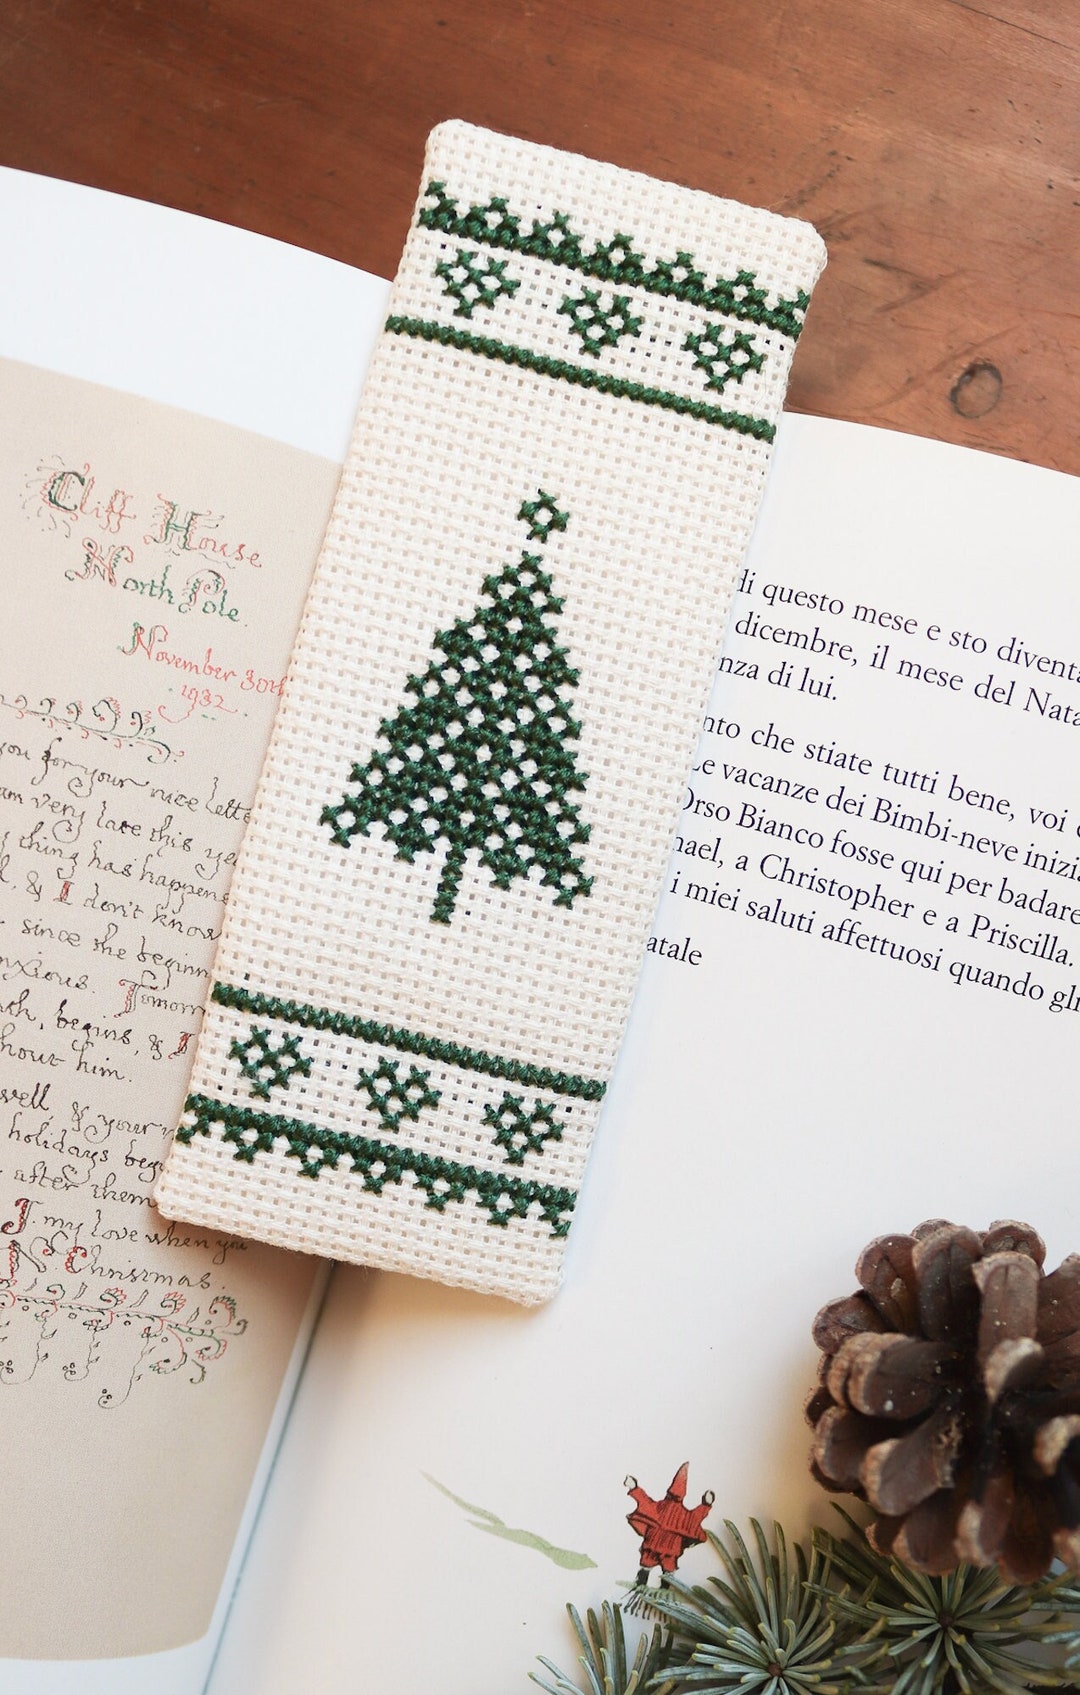 Cliff House
North Pole.
November 30th
1932.
you for your nice lette
am very late this ye
thing has happene
& I don't know
since the beginn
nxious. Tomorr
begins, & I
hout him.
well, & your
holidays beg
after them
I. my love when you
N. Christmas.
di questo mese e sto diventa
dicembre, il mese del Nata
nza di lui.
nto che stiate tutti bene, voi
Le vacanze dei Bimbi-neve inizia
Orso Bianco fosse qui per badare
hael, a Christopher e a Priscilla.
i miei saluti affettuosi quando gli
atale